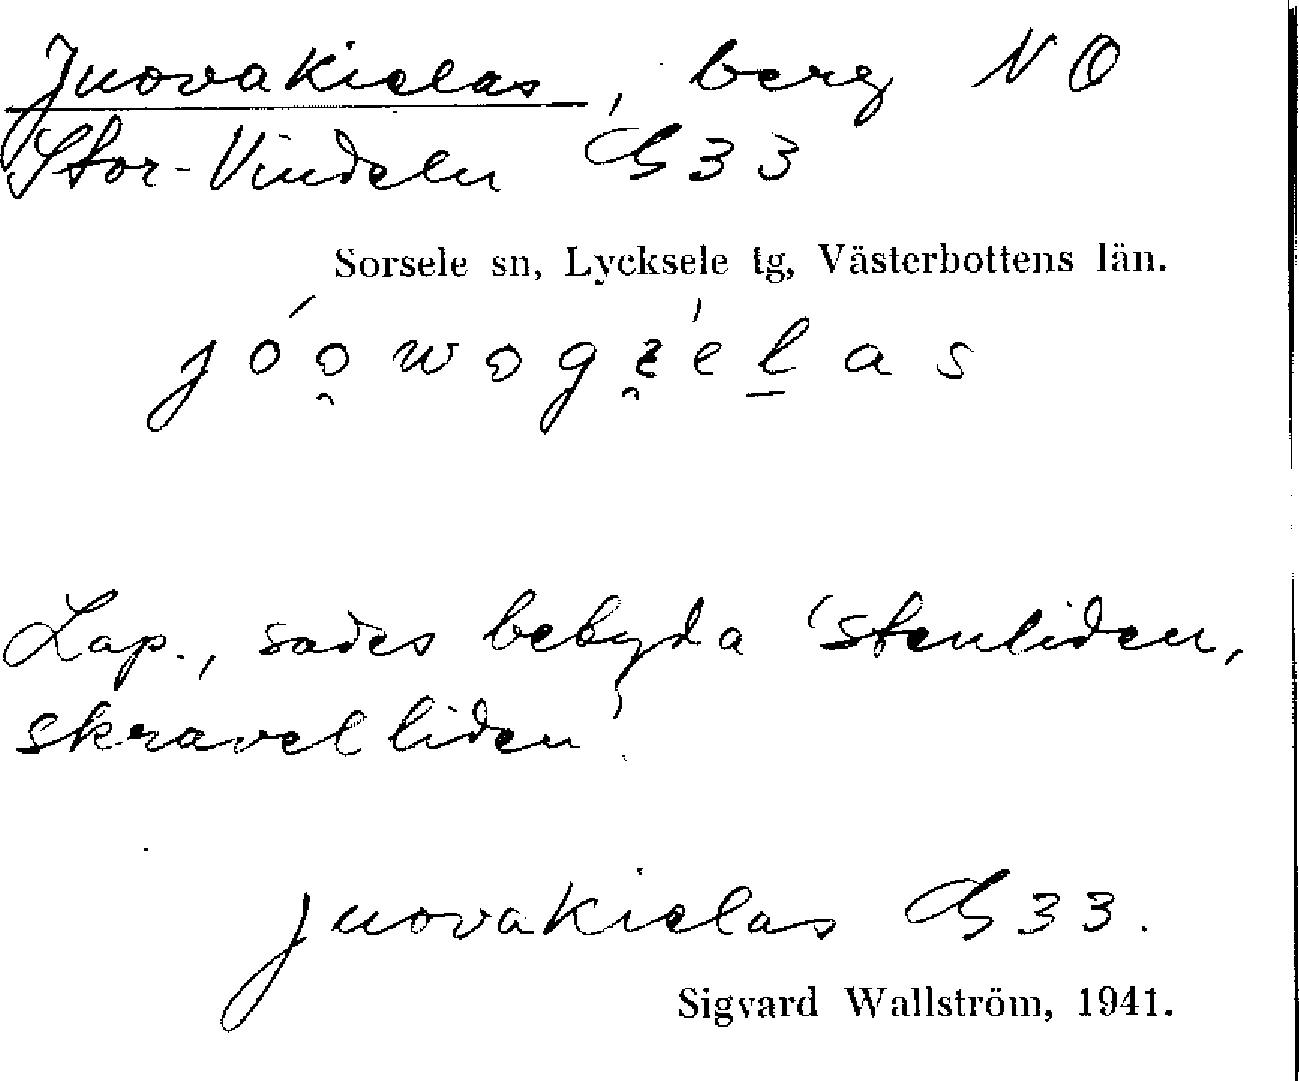 Juovakielas, berg NO
Stor-Vindeln GS 33
Sorsele sn, Lycksele tg, Västerbottens län.
Lap., sades betyda 'stenliden,
skravelliden'.
juovakielas GS 33.
Sigvard Wallström, 1941.